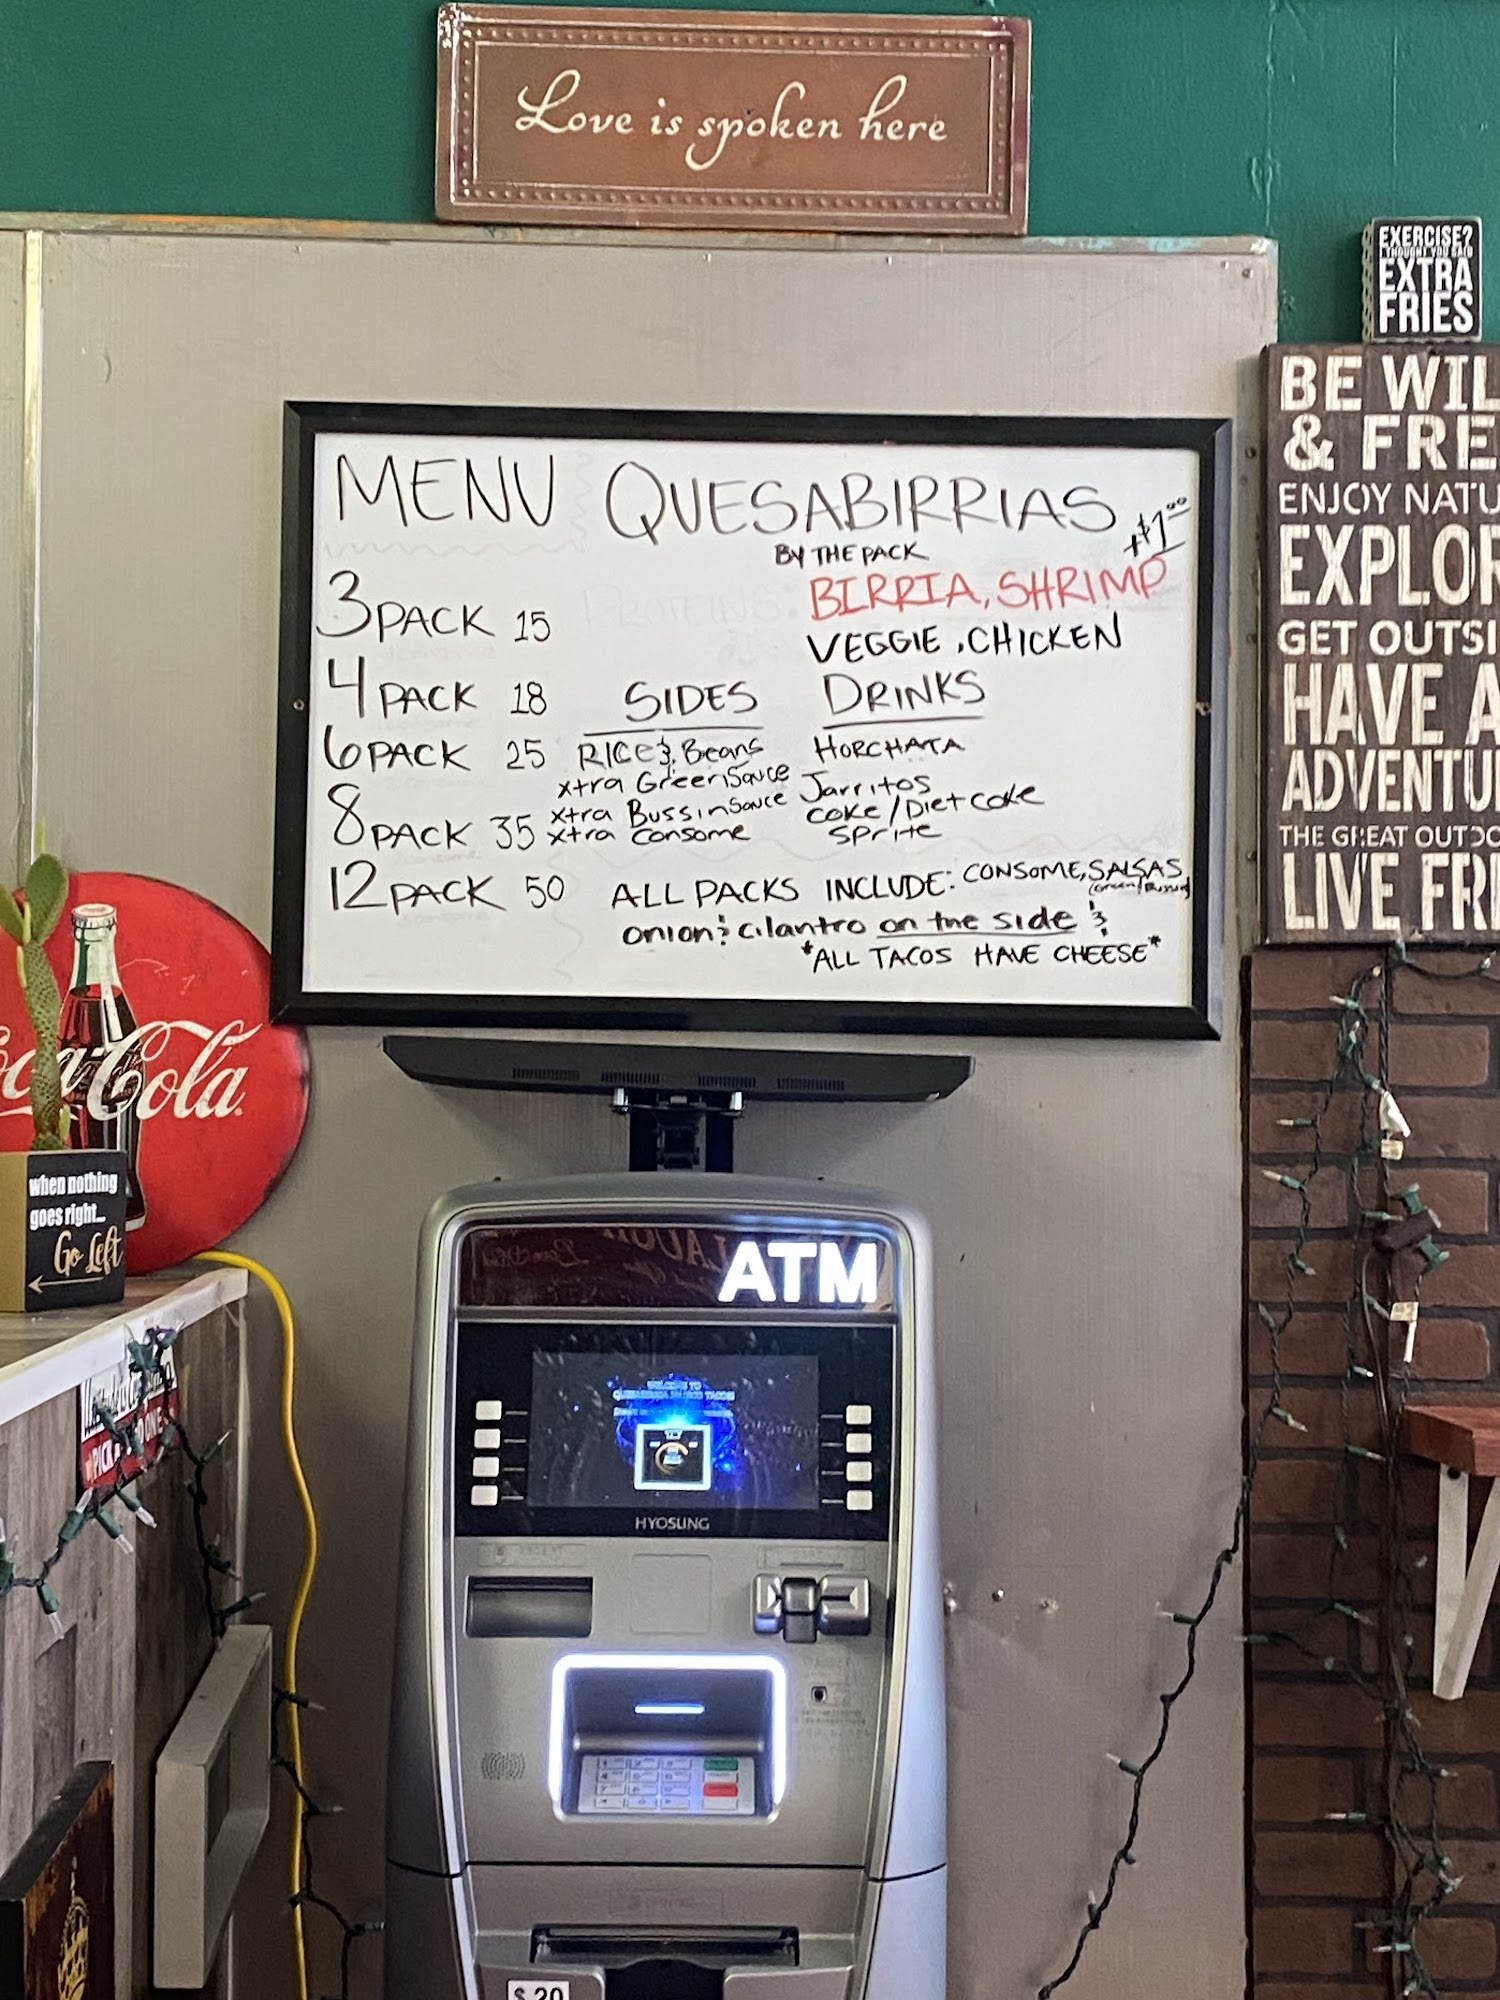 Love is spoken here
EXERCISE?
I THOUGHT YOU SAID
EXTRA
FRIES
BE WIL
& FRE
ENJOY NATU
EXPLOR
GET OUTSI
HAVE A
ADVENTU
THE GREAT OUTDO
LIVE FRE
MENU QUESABIRRIAS
BY THE PACK
+$1.00
BIRRIA, SHRIMP
VEGGIE, CHICKEN
3 PACK 15
4 PACK 18
6 PACK 25
8 PACK 35
12 PACK 50
SIDES
RICE & Beans
xtra Green Sauce
xtra Bussin Sauce
xtra Consome
DRINKS
HORCHATA
Jarritos
COKE/Diet coke
Sprite
ALL PACKS INCLUDE: CONSOME, SALSAS
(Green/Bussin)
onion & cilantro on the side &
*ALL TACOS HAVE CHEESE*
Coca-Cola
when nothing
goes right...
Go Left
ATM
WELCOME TO
HYOSUNG
$20